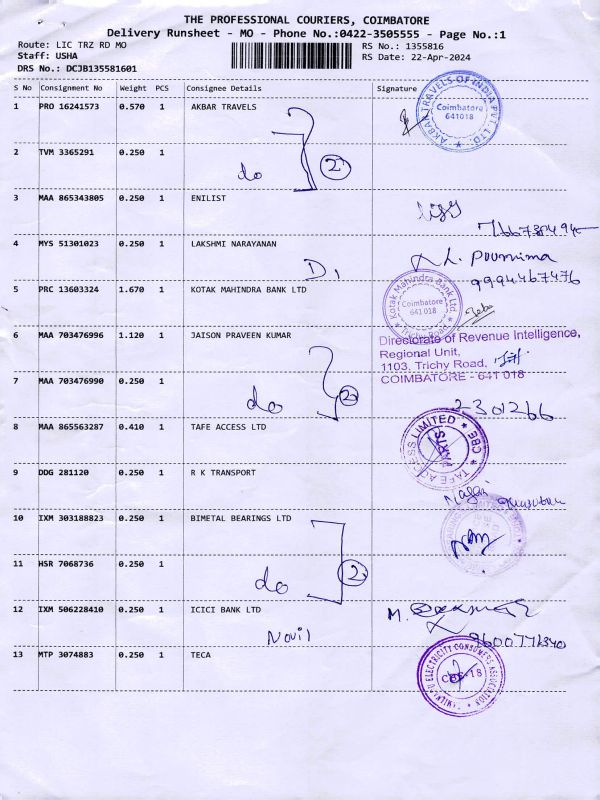 THE PROFESSIONAL COURIERS, COIMBATORE
Delivery Runsheet - MO - Phone No.:0422-3505555 - Page No.:1
Route: LIC TRZ RD MO
RS No.: 1355816
Staff: USHA
RS Date: 22-Apr-2024
DRS No.: DCJB135581601
S No Consignment No Weight PCS Consignee Details Signature
1 PRO 16241573 0.570 1 AKBAR TRAVELS
AKBAR TRAVELS OF INDIA PVT. LTD.
Coimbatore
641018
2 TVM 3365291 0.250 1
do 2
3 MAA 865343805 0.250 1 ENILIST
4 MYS 51301023 0.250 1 LAKSHMI NARAYANAN
L. Poornima
9994467476
5 PRC 13603324 1.670 1 KOTAK MAHINDRA BANK LTD
Kotak Mahindra Bank Ltd.
Coimbatore
641 018
Trichy Road
6 MAA 703476996 1.120 1 JAISON PRAVEEN KUMAR
Directorate of Revenue Intelligence,
Regional Unit,
1103, Trichy Road,
COIMBATORE - 641 018
7 MAA 703476990 0.250 1
do 2
2301266
8 MAA 865563287 0.410 1 TAFE ACCESS LTD
TAFE ACCESS LIMITED
CBE
PARTS
9 DDG 281120 0.250 1 R K TRANSPORT
10 IXM 303188823 0.250 1 BIMETAL BEARINGS LTD
11 HSR 7068736 0.250 1
do 2
12 IXM 506228410 0.250 1 ICICI BANK LTD
13 MTP 3074883 0.250 1 TECA
TAMILNADU ELECTRICITY CONSUMERS ASSOCIATION
CBE-18